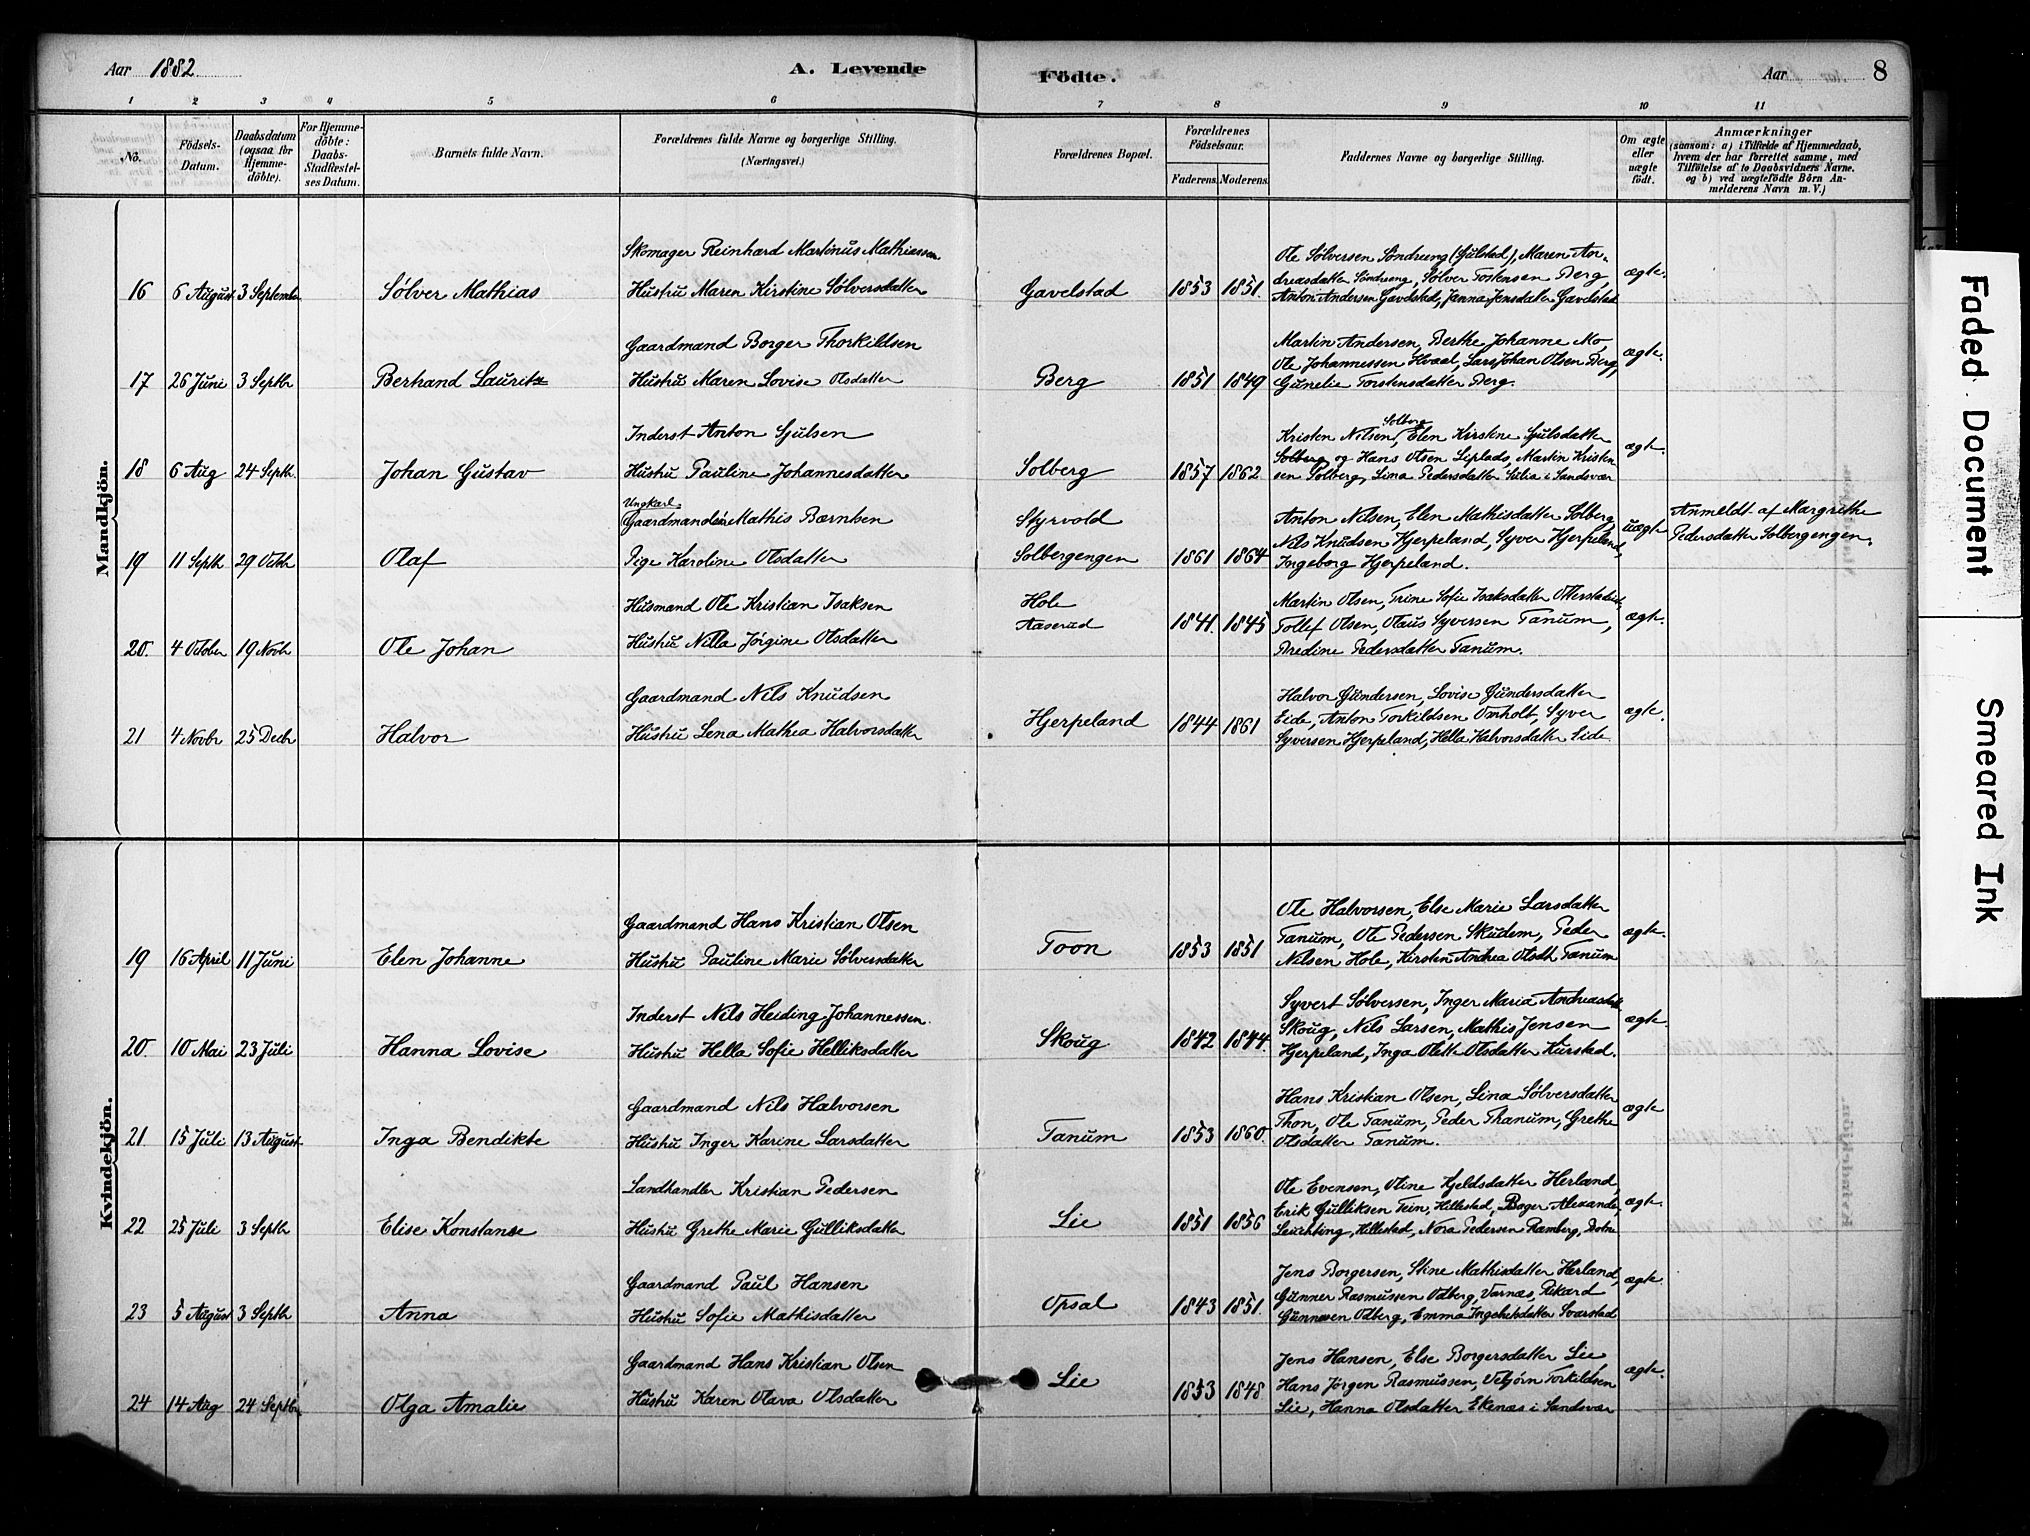 Aar 1882
A. Levende Födte.
Aar 8
1 2 3 4 5 6 7 8 9 10 11
No.
Födsels-Datum.
Daabsdatum (ogsaa for Hjemme-döbte).
For Hjemme-döbte: Daabs-Stadfæstel-ses Datum.
Barnets fulde Navn.
Forældrenes fulde Navne og borgerlige Stilling.
(Næringsvei.)
Forældrenes Bopæl.
Forældrenes Födselsaar.
Faderens. Moderens.
Faddernes Navne og borgerlige Stilling.
Om ægte eller uægte födt.
Anmærkninger
(saasom: a) i Tilfælde af Hjemmedaab,
hvem der har forrettet samme, med
Tilföielse af to Daabsvidners Navne.
og b) ved uægtefödte Börn An-
melderens Navn m. V.)
Mandkjön.
Skomager Reinhard Martinus Mathiassen
16 6 August 3 September Sølver Mathias Hustru Maren Kirstine Sølversdatter Gavelstad 1853 1851
Ole Sølversen Söndreeng (Gulstad), Maren An-
dreasdatter Söndreeng, Sølver Torstensen Berg,
Anton Andersen Gavelstad, Jenna Jensdatter Gavelstad
ægte.
Gaardmand Borger Thorkildsen
17 26 Juni 3 Septbr Berhand Lauritz Hustru Maren Lovise Olsdatter Berg 1851 1849
Martin Andersen, Berthe Johanne Mo,
Ole Johannessen Hvaal, Lars Johan Olsen Berg,
Gunelie Torstensdatter Berg.
ægte.
Inderst Anton Gjulsen
18 6 Aug 24 Septbr. Johan Gustav Hustru Pauline Johannesdatter Solberg 1857 1862
Solberg
Kristen Nilsen, Elen Kirstine Gjulsdatter
Solberg og Hans Olsen Liplads, Martin Kristen
sen Solberg, Lina Pedersdatter Lulia i Sandsvær
ægte.
Ungkarl
Gaardmandsön Mathis Bærntsen Styrvold
19 11 Septbr 29 Octbr Olaf Pige Karoline Olsdatter Solbergengen 1861 1864
Anton Nilsen, Elen Mathisdatter Solberg,
Nils Knudsen Hjerpeland, Syver Hjerpeland,
Ingeborg Hjerpeland.
uægte
Anmeldt af Margrethe
Pedersdatter Solbergengen.
Husmand Ole Kristian Isaksen Hole
20. 4 October 19 Novbr Ole Johan Hustru Nilla Jörgine Olsdatter Aaserud 1841. 1845
Martin Olsen, Trine Sofie Isaksdatter Otterstadeie,
Tollef Olsen, Olaus Syversen Tanum,
Bredine Pedersdatter Tanum.
ægte.
Gaardmand Nils Knudsen
21 4 Novbr 25 Decbr Halvor Hustru Lena Mathea Halvorsdatter Hjerpeland 1844 1861
Halvor Gundersen, Lovise Gundersdatter
Eide, Anton Torkildsen Omholt, Syver
Syversen Hjerpeland, Hella Halvorsdatter Eide
ægte.
Kvindekjön.
Gaardmand Hans Kristian Olsen
19 16 April 11 Juni Elen Johanne Hustru Pauline Marie Sølversdatter Toon 1853 1851
Ole Halvorsen, Else Marie Larsdatter
Tanum, Ole Pedersen Skudem, Peder
Nilsen Hole, Kirsten Andrea Olsdtr Tanum
ægte.
Inderst Nils Heiding Johannessen.
20. 10 Mai 23 Juli Hanna Lovise Hustru Hella Sofie Helliksdatter Skoug 1842 1844.
Syvert Sølversen, Inger Maria Andreasdatter
Skoug, Nils Larsen, Mathis Jensen
Hjerpeland, Inga Olette Olsdatter Kurstad.
ægte.
Gaardmand Nils Halvorsen
21 15 Juli 13 August Inga Bendikte Hustru Inger Karine Larsdatter Tanum 1853 1860.
Hans Kristian Olsen, Lina Sølversdatter
Thon, Ole Tanum, Peder Thanum, Grethe
Olsdatter Tanum.
ægte
Landhandler Kristian Pedersen
22 25 Juli 3 Septbr Elise Konstanse Hustru Grethe Marie Gulliksdatter Lie 1851 1856
Ole Evensen, Oline Kjeldsdatter Herland,
Erik Gulliksen Tein, Hillestad, Borger Alexander
Leuchting, Hillestad, Nora Pedersen Ramberg, Botne
ægte.
Gaardmand Paul Hansen
23 5 August 3 Septbr Anna Hustru Sofie Mathisdatter Opsal 1843 1851.
Jens Borgersen, Stine Mathisdatter Herland,
Gunner Rasmussen Odberg, Varnæs, Rikard
Gunnesen Odberg, Emma Ingebretsdatter Svarstad
ægte.
Gaardmand Hans Kristian Olsen
24 14 Aug 24 Septbr Olga Amalie Hustru Karen Olava Olsdatter Lie 1853 1848
Jens Hansen, Else Borgersdatter Lie,
Hans Jörgen Rasmussen, Vebjörn Torkildsen
Lie, Hanna Olsdatter Ekenæs i Sandsvær
ægte.
Faded Document
Smeared Ink